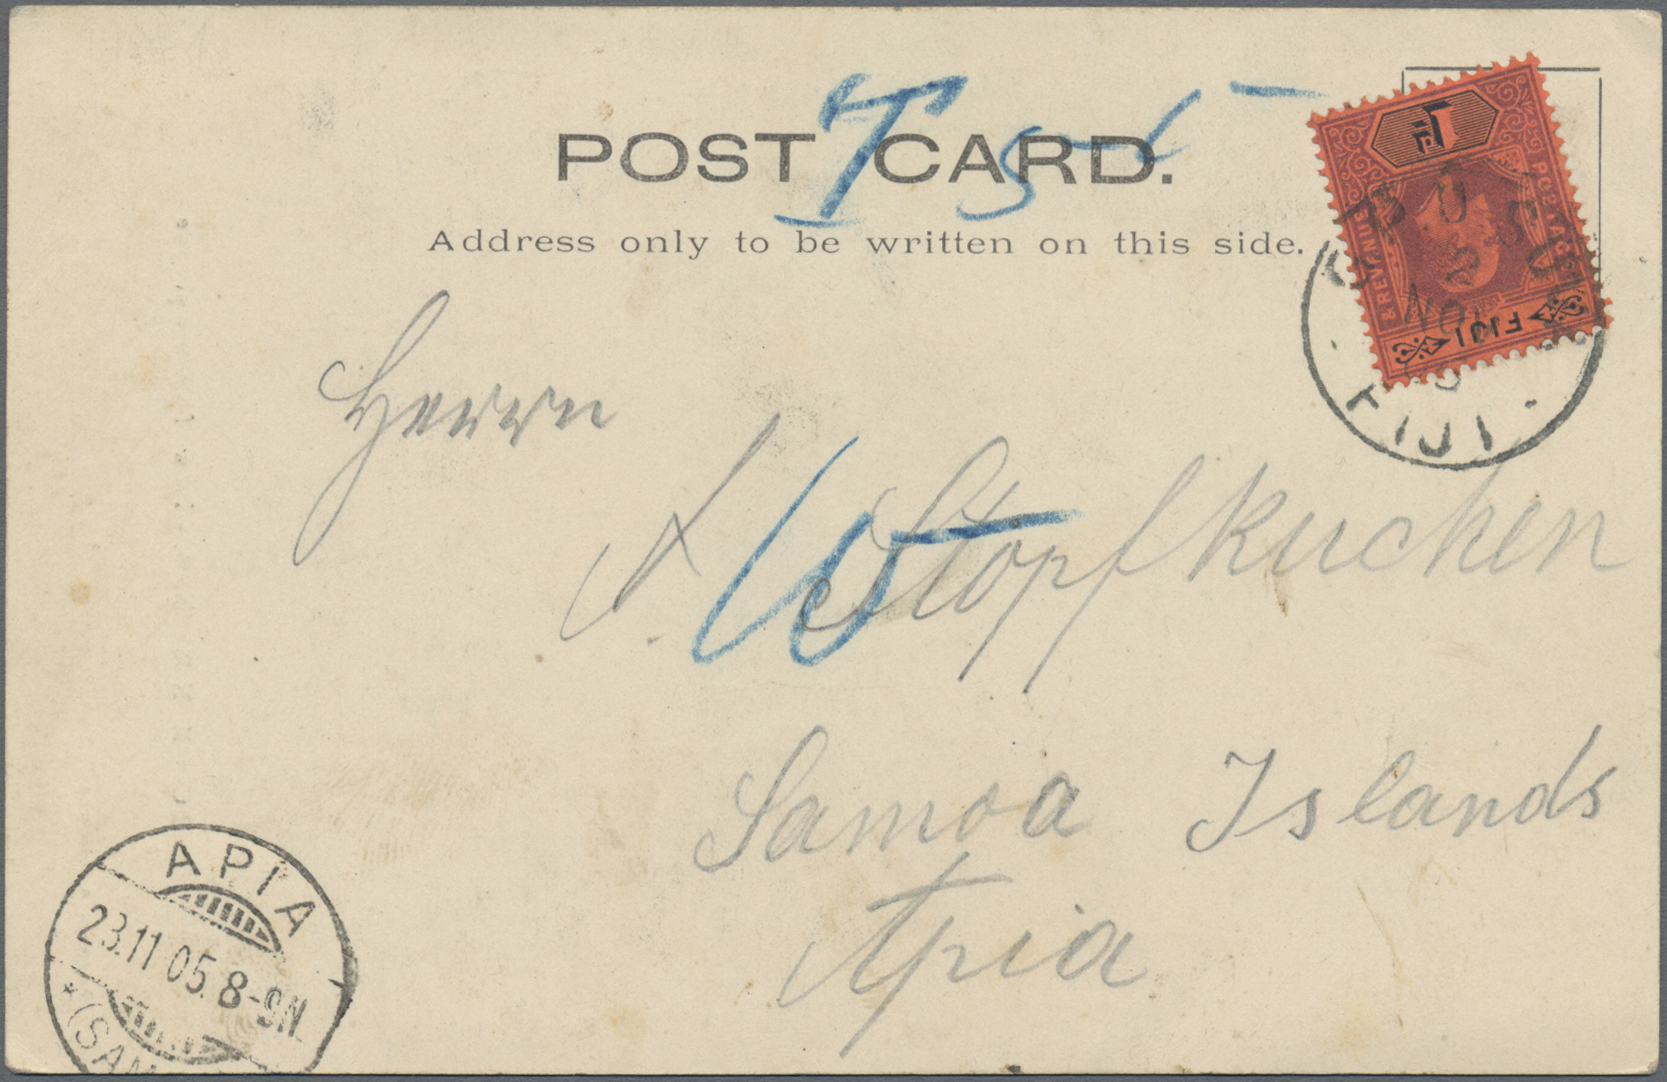 POST CARD.
T 5
Address only to be written on this side.
& REVENUE
POSTAGE
FIJI
G.P.O. SUVA
NOV
05
FIJI
Herrn
A. Stopfkuchen
15
Samoa Islands
Apia
APIA
23.11 05. 8-9N.
* (SAM